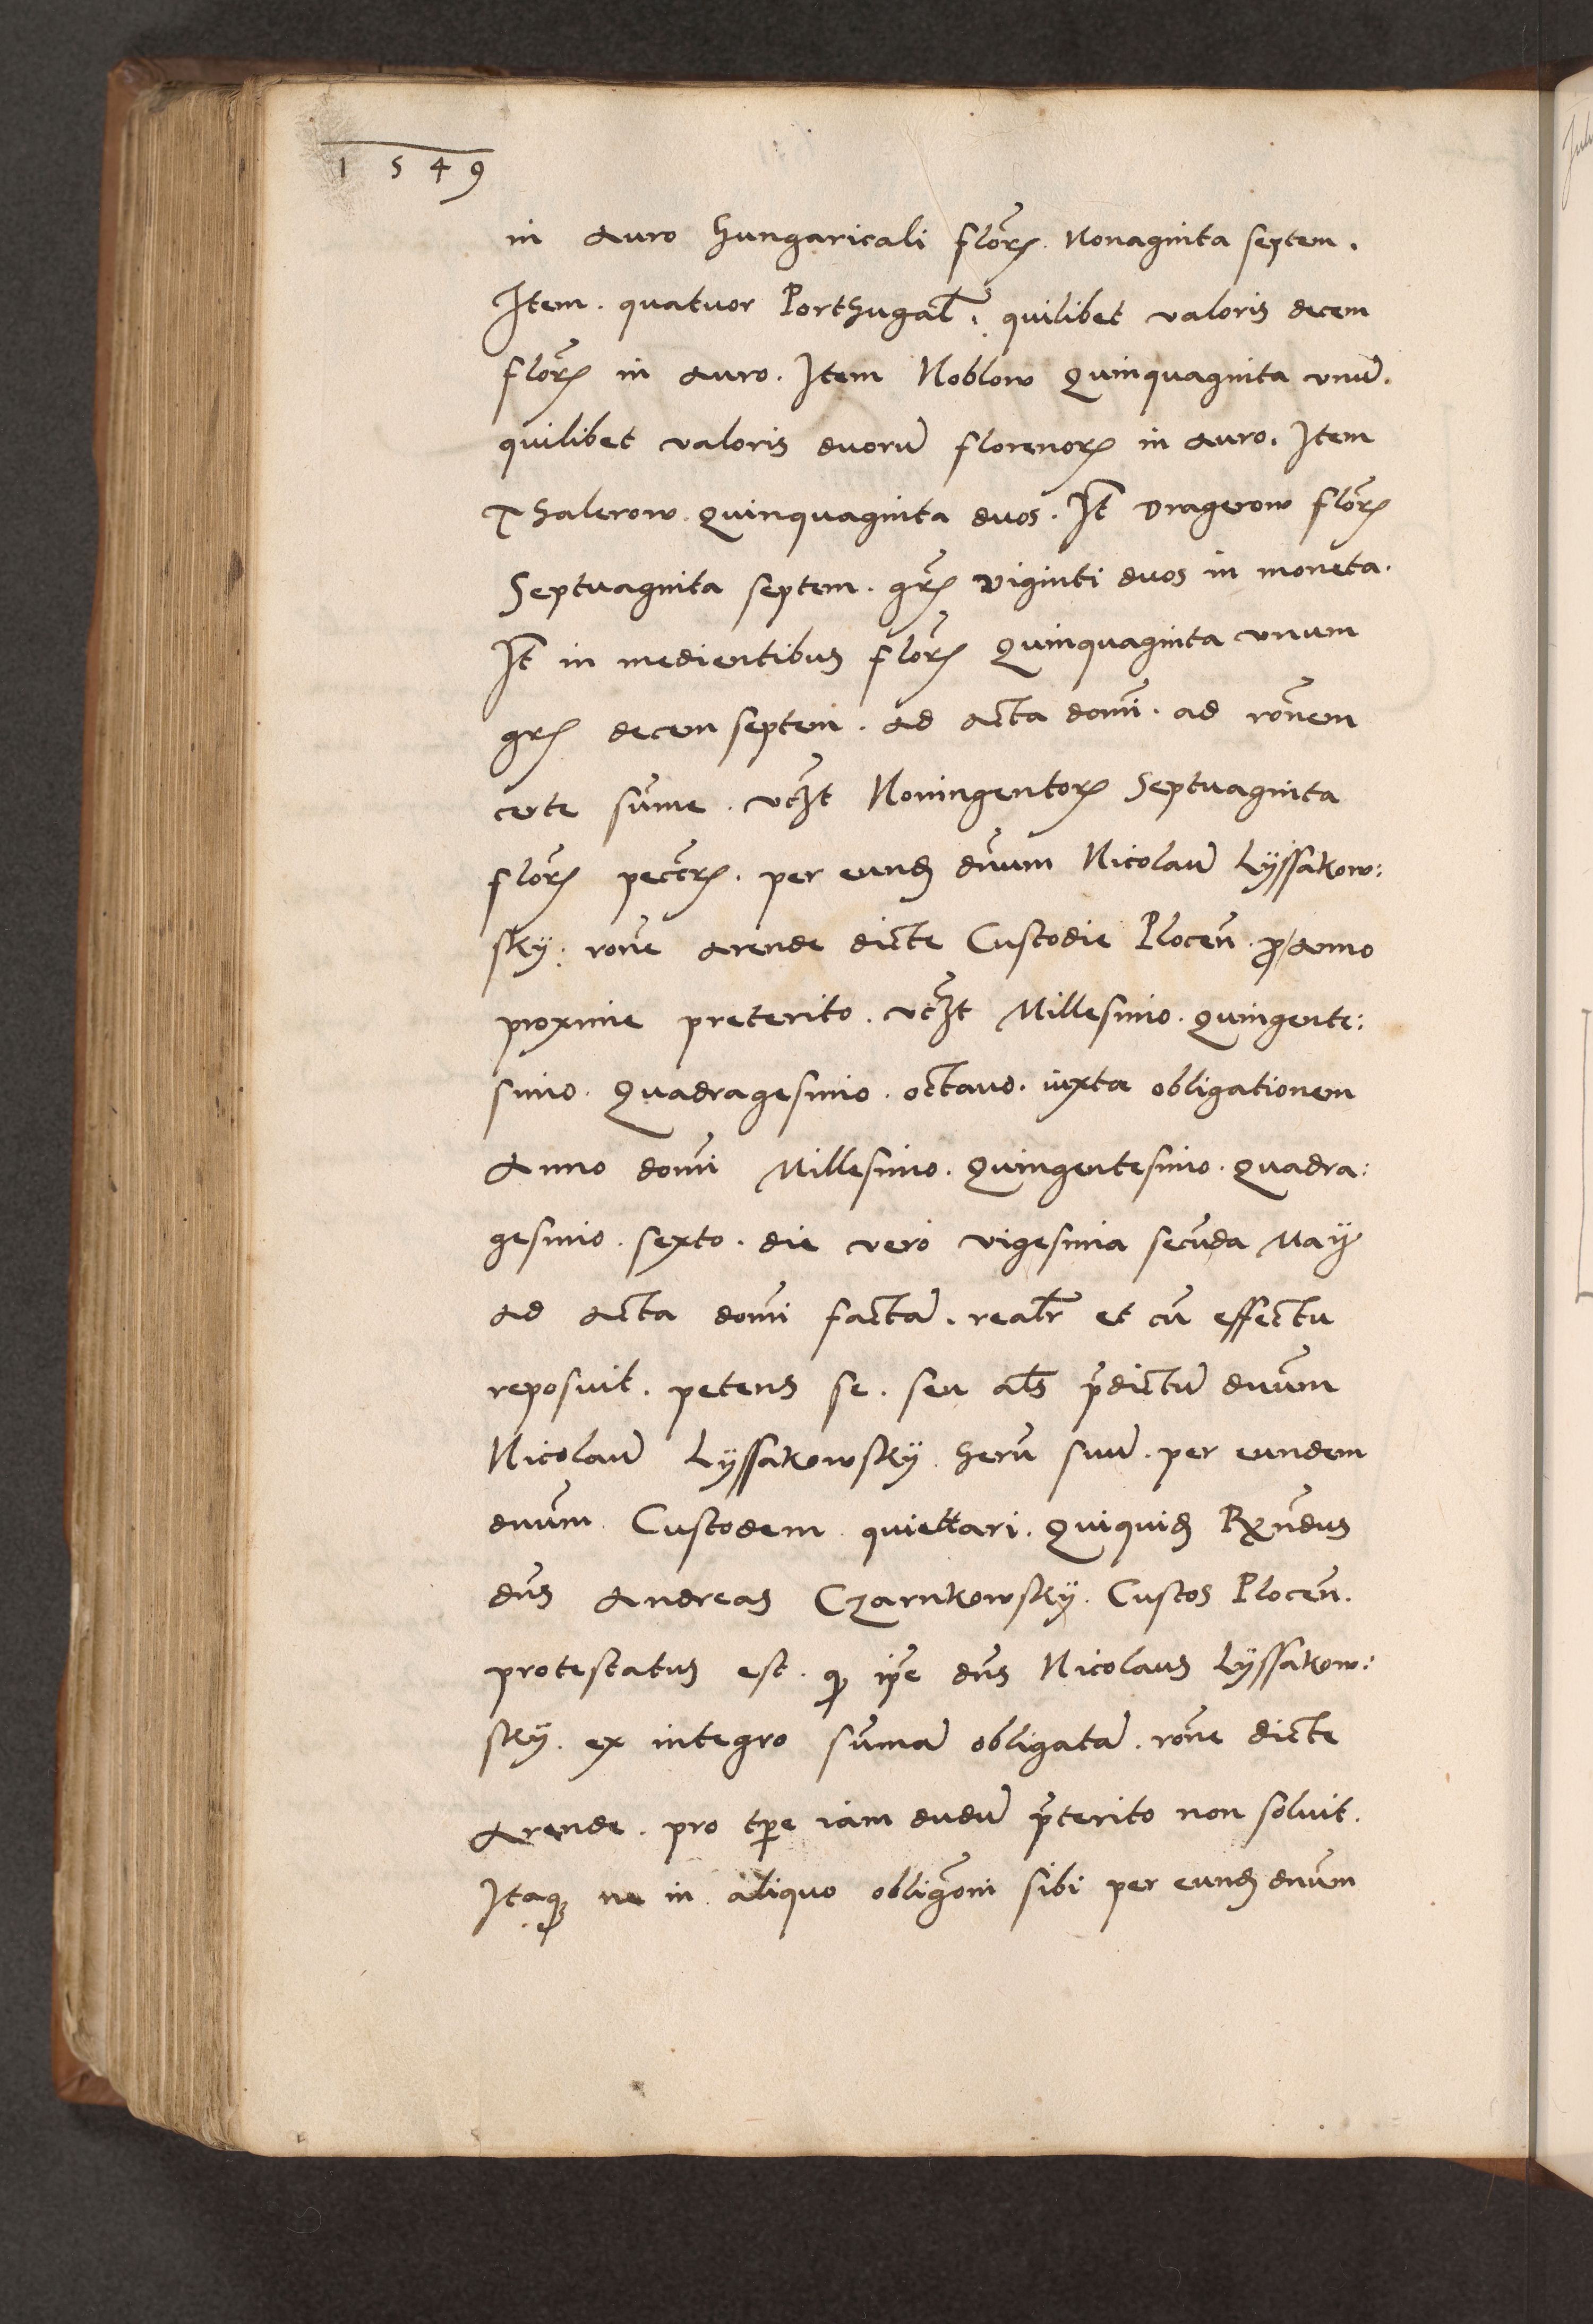 1549
in auro Hungaricali florꝝ. Nonaginta septem.
Item. quatuor Porthugal. quilibet valoris decem
florꝝ in auro. Item Noblow Quinquaginta vnū.
quilibet valoris duorū florenorꝝ in auro. Item
Thalerow. Quinquaginta duos. Itē Dragerow florꝝ
Septuaginta septem. grꝝ viginti duos in moneta.
Itē in medientibus florꝝ Quinquaginta vnum
grꝝ decem septem. ad acta domī. ad rōnem
certe sūme. vcꝫt Noningentorꝝ Septuaginta
florꝝ pecc̄rꝝ. per eundꝫ dn̄um Nicolaū Lÿssakow:
skÿ. rōne arende dicte Custodie Plocen̄. ꝓ anno
proxime preterito. vcꝫt Millesimo. Quingente:
simo. Quadragesimo. octauo. iuxta obligationem
Anno domī Millesimo. Quingentesimo. Quadra:
gesimo. sexto. die vero vigesima secūda Maÿ
ad acta domī factā. realr̄ et cū effectu
reposuit. petens se. seu al̄s p̄dictū dn̄um
Nicolaū Lÿssakowskÿ. herū suū. per eundem
dn̄um. Custodem. quiettari. Quiquidꝫ Rx̄ndus
dn̄s Andreas Czarnkowskÿ. Custos Plocen̄.
protestatus est. ꝙ ip̄e dn̄s Nicolaus Lÿssakow:
skÿ. ex integro sūmā obligatā. rōne dicte
Arende. pro tp̄e iam dudū p̄terito non soluit.
Itaqꝫ ne in aliquo obliḡoni sibi per eundꝫ dn̄um